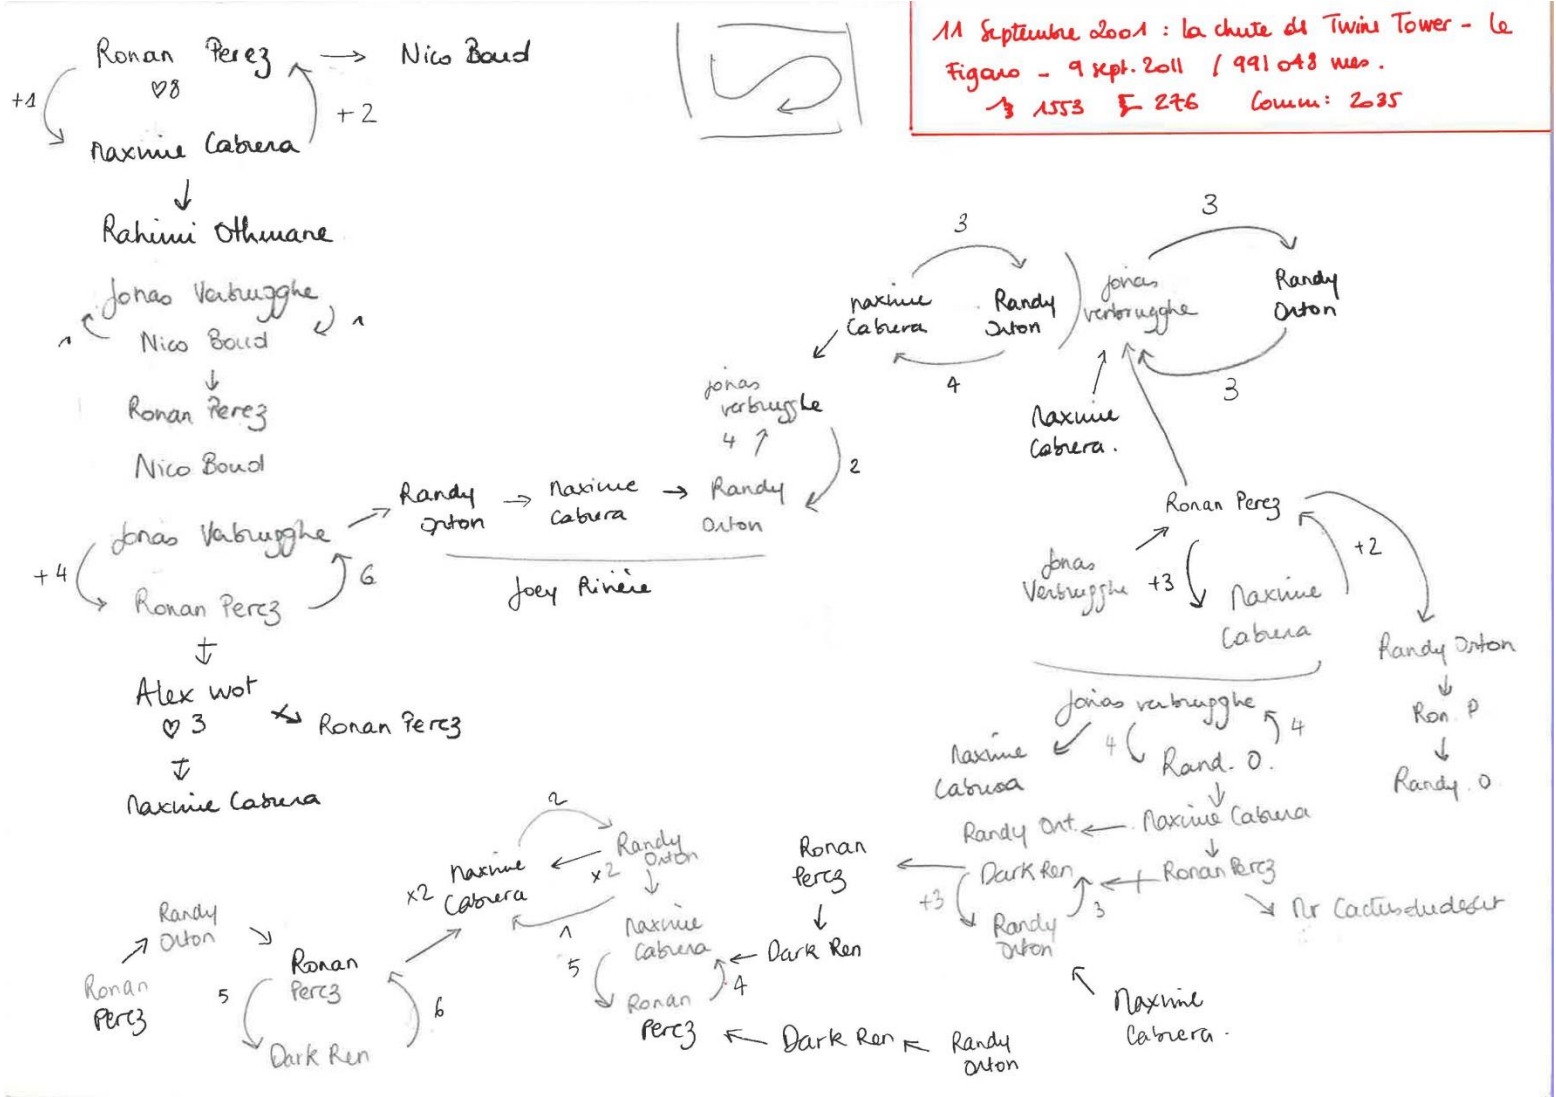 11 Septembre 2001 : la chute de Twins Tower - Le
Figaro - 9 sept. 2011 / 991 048 vues.
1553 276 Comm : 2035
Ronan Perez → Nico Boud
♡8
+1
+2
Maxime Cabrera
Rahimi Othmane
Jonas Verbrugghe
1
1
Nico Boud
Ronan Perez
Nico Boud
Jonas Verbrugghe
+4
6
Ronan Perez
Alex Wot
♡ 3
Ronan Perez
Maxime Cabrera
Randy
Orton
→
Maxime
Cabrera
→
Randy
Orton
Joey Rivière
4
2
Jonas
Verbrugghe
Maxime
Cabrera
3
4
Randy
Orton
Jonas
Verbrugghe
3
3
Randy
Orton
Maxime
Cabrera.
Ronan Perez
Jonas
Verbrugghe
+3
+2
Maxime
Cabrera
Randy Orton
Ron. P
Randy. O
Jonas Verbrugghe
4
4
Maxime
Cabrera
Rand. O.
Randy Ort. ← Maxime Cabrera
Dark Ren ← Ronan Perez
Mr Cactusdudesert
+3
3
Randy
Orton
Maxime
Cabrera.
Ronan
Perez
Dark Ren
2
Randy
Orton
x2
x2
Maxime
Cabrera
1
Maxime
Cabrera
5
4
Ronan
Perez ← Dark Ren ← Randy
Orton
Randy
Orton
Ronan
Perez
Ronan
Perez
5
6
Dark Ren